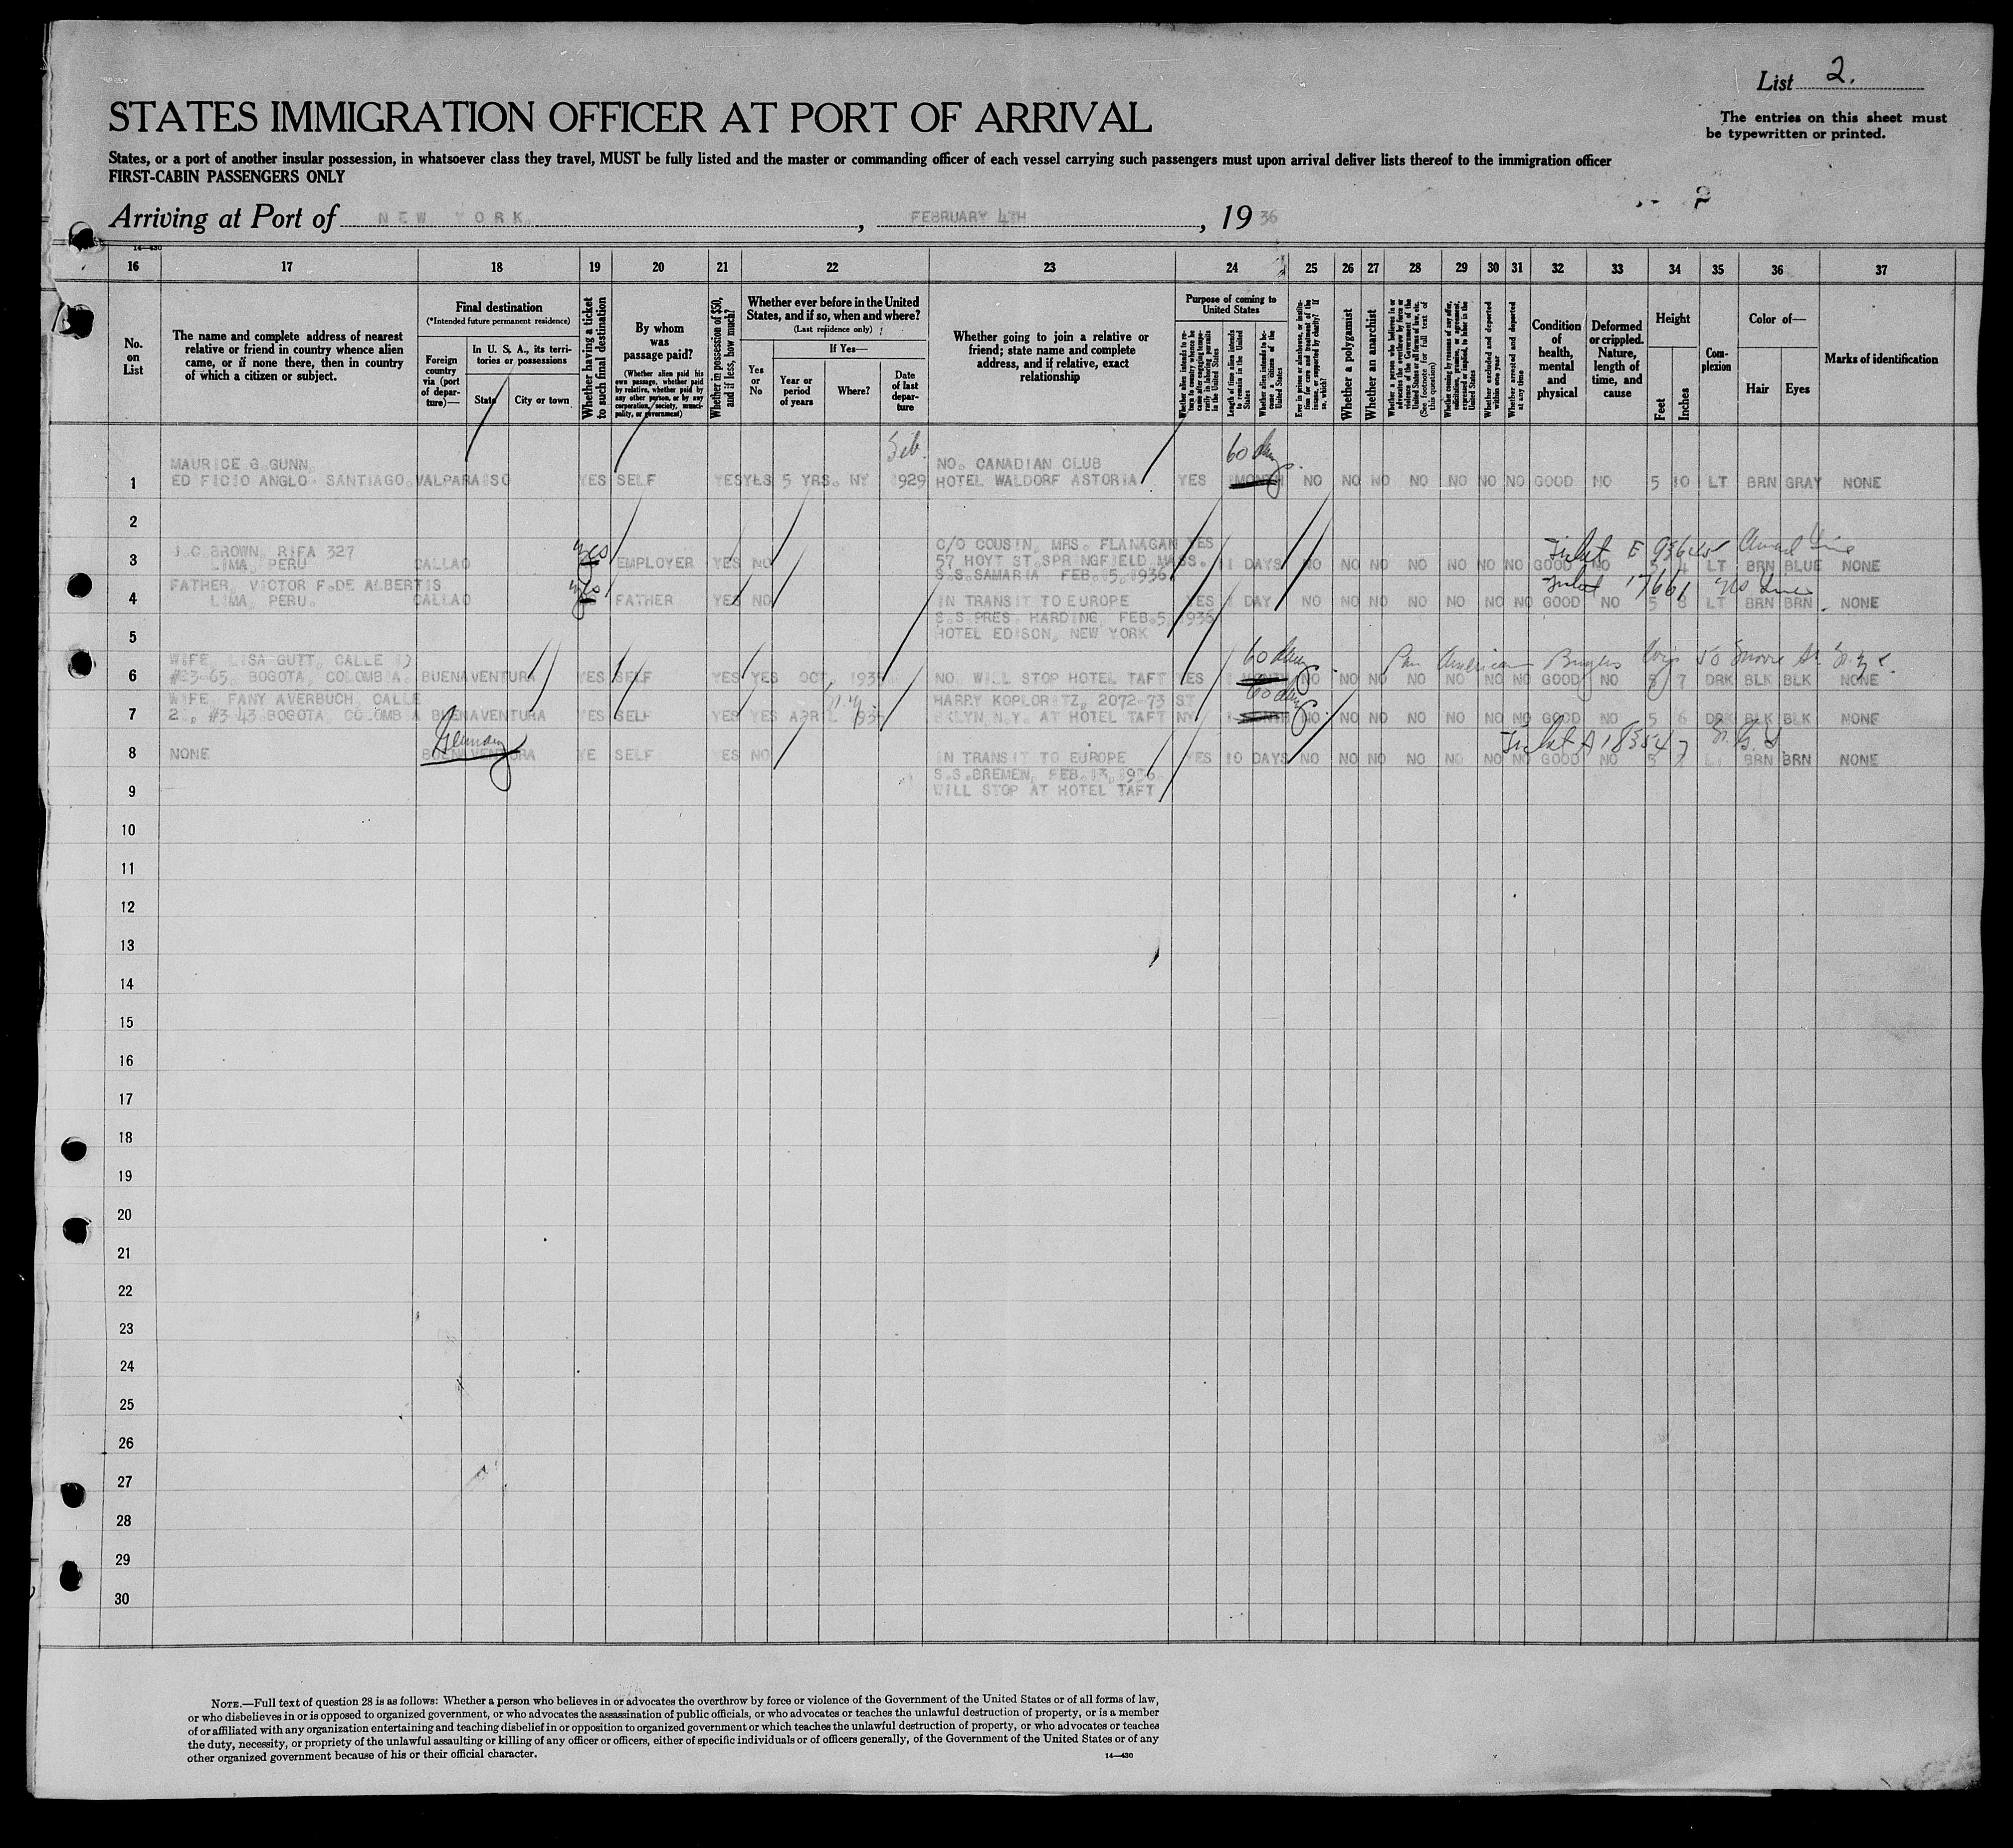 List 2.
The entries on this sheet must
be typewritten or printed.
STATES IMMIGRATION OFFICER AT PORT OF ARRIVAL
States, or a port of another insular possession, in whatsoever class they travel, MUST be fully listed and the master or commanding officer of each vessel carrying such passengers must upon arrival deliver lists thereof to the immigration officer
FIRST-CABIN PASSENGERS ONLY
2
Arriving at Port of NEW YORK, FEBRUARY 4TH, 1936
14—430
16 17 18 19 20 21 22 23 24 25 26 27 28 29 30 31 32 33 34 35 36 37
No. on List
The name and complete address of nearest
relative or friend in country whence alien
came, or if none there, then in country
of which a citizen or subject.
Final destination
(*Intended future permanent residence)
Foreign country via (port of departure)—
In U. S. A., its territories or possessions
State
City or town
Whether having a ticket to such final destination
By whom was passage paid?
(Whether alien paid his own passage, whether paid by relative, whether paid by any other person, or by any corporation, society, municipality, or government)
Whether in possession of $50, and if less, how much?
Whether ever before in the United States, and if so, when and where?
(Last residence only)
Yes or No
If Yes—
Year or period of years
Where?
Date of last departure
Whether going to join a relative or
friend; state name and complete
address, and if relative, exact
relationship
Purpose of coming to United States
Whether alien intends to return to country whence he came after engaging temporarily in laboring pursuits in the United States
Length of time alien intends to remain in the United States
Whether alien intends to become a citizen of the United States
Ever in prison or almshouse, or institution for care and treatment of the insane, or supported by charity? If so, which?
Whether a polygamist
Whether an anarchist
Whether a person who believes in or advocates the overthrow by force or violence of the Government of the United States or all forms of law, etc. (See footnote for full text of this question)
Whether coming by reason of any offer, solicitation, promise, or agreement, expressed or implied, to labor in the United States
Whether excluded and deported within one year
Whether arrested and deported at any time
Condition of health, mental and physical
Deformed or crippled. Nature, length of time, and cause
Height
Feet
Inches
Complexion
Color of—
Hair
Eyes
Marks of identification
Feb. 60 days
MAURICE G. GUNN, NO. CANADIAN CLUB
1 EDIFICIO ANGLO. SANTIAGO. VALPARAISO YES SELF YES YES 5 YRS. NY 1929 HOTEL WALDORF ASTORIA YES 1 MONTH NO NO NO NO NO NO NO GOOD NO 5 10 LT BRN GRAY NONE
2
yes C/O COUSIN, MRS. FLANAGAN YES Ticket E 93645 Cunard Line
J.C. BROWN, RIFA 327
3 LIMA, PERU CALLAO EMPLOYER YES NO 57 HOYT ST. SPRINGFIELD MASS. 11 DAYS NO NO NO NO NO NO NO GOOD NO 5 4 LT BRN BLUE NONE
S.S. SAMARIA FEB. 15, 1936
FATHER, VICTOR F. DE ALBERTIS yes Ticket 17661 US Lines
4 LIMA, PERU. CALLAO FATHER YES NO IN TRANSIT TO EUROPE YES 1 DAY NO NO NO NO NO NO NO GOOD NO 5 8 LT BRN BRN NONE
S.S. PRES. HARDING, FEB. 5, 1936
5 HOTEL EDISON, NEW YORK
WIFE, LISA GUTT, CALLE 60 days Pan American Moore St. N.Y.C.
6 #23-65, BOGOTA, COLOMBIA. BUENAVENTURA YES SELF YES YES OCT. NO, WILL STOP HOTEL TAFT YES 1 NO NO NO NO NO NO NO GOOD NO 5 7 DRK BLK BLK NONE
WIFE, FANY AVERBUCH, CALLE HARRY KOPLORITZ, 2072-73 ST 60 days
7 2, #3-43 BOGOTA, COLOMBIA BUENAVENTURA YES SELF YES YES APRIL BKLYN, N.Y. AT HOTEL TAFT NY NO NO NO NO NO NO NO GOOD NO 5 6 DRK BLK BLK NONE
Germany Ticket A 183547 N.G.L.
8 NONE BUENAVENTURA YE SELF YES NO IN TRANSIT TO EUROPE YES 10 DAYS NO NO NO NO NO NO NO GOOD NO 5 7 LT BRN BRN NONE
S.S. BREMEN, FEB. 13, 1936.
9 WILL STOP AT HOTEL TAFT
10
11
12
13
14
15
16
17
18
19
20
21
22
23
24
25
26
27
28
29
30
NOTE.—Full text of question 28 is as follows: Whether a person who believes in or advocates the overthrow by force or violence of the Government of the United States or of all forms of law,
or who disbelieves in or is opposed to organized government, or who advocates the assassination of public officials, or who advocates or teaches the unlawful destruction of property, or is a member
of or affiliated with any organization entertaining and teaching disbelief in or opposition to organized government or which teaches the unlawful destruction of property, or who advocates or teaches
the duty, necessity, or propriety of the unlawful assaulting or killing of any officer or officers, either of specific individuals or of officers generally, of the Government of the United States or of any
other organized government because of his or their official character.
14—430